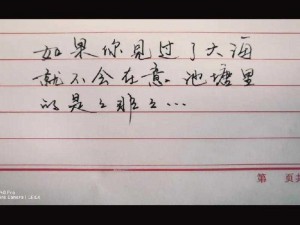 如果你见过了大海
就不会在意池塘里
的是々非々…
第 页共